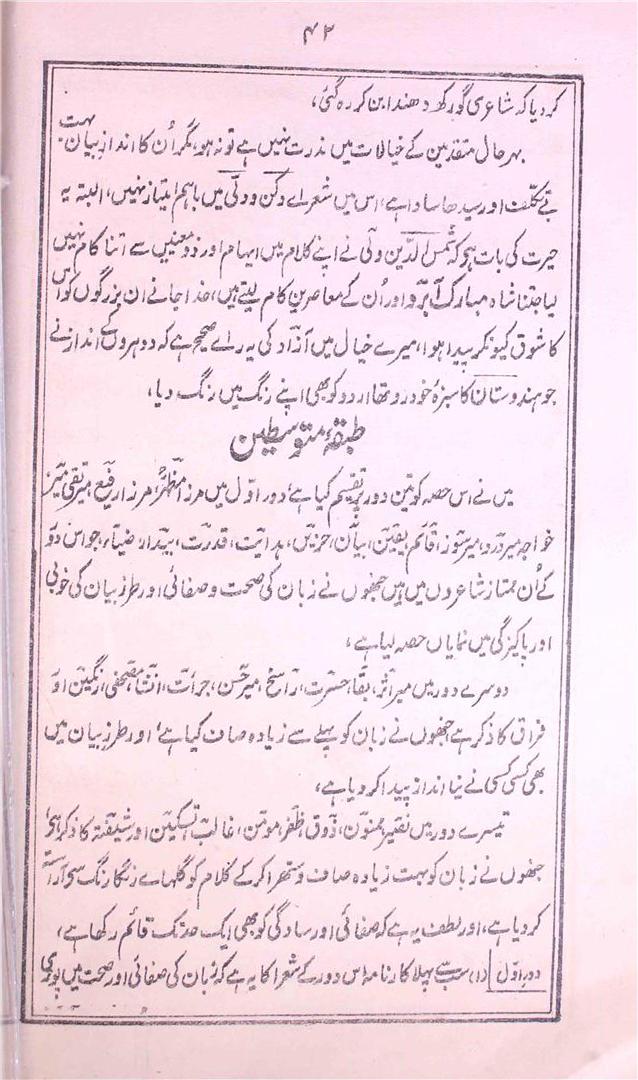 ۴۲
کر دیا کہ شاعری گورکھ دھندا بن کر رہ گئی،
بہر حال متقدمین کے خیالات میں ندرت نہیں ہے تو نہ ہو، مگر اُن کا اندازِ بیان بہت
بے تکلف اور سیدھا سادا ہے، اس میں شعراے دکن و دلّی میں باہم امتیاز نہیں، البتہ یہ
حیرت کی بات ہو کہ شمس الدّین ولی نے اپنے کلام میں ایہام اور ذو معنیین سے اتنا کام نہیں
لیا جتنا شاہ مبارک آبرو اور اُن کے معاصرین کام لیتے ہیں، خدا جانے ان بزرگوں کو اس
کا شوق کیونکر پیدا ہوا، میرے خیال میں آزاد کی یہ راے صحیح ہے کہ دوہروں کے انداز نے
جو ہندوستان کا سبزۂ خودرو تھا اردو کو بھی اپنے رنگ میں رنگ دیا،
طبقۂ متوسطین
میں نے اس حصہ کو تین دور پر تقسیم کیا ہے، دورِ اوّل میں مرزا مظہر، مرزا رفیع، میر تقی میر
خواجہ میر درد، میر سوز، قائم، یقین، بیان، حزیں، ہدایت، قدرت، بیدار، ضیاء، جو اس دور
کے اُن ممتاز شاعروں میں ہیں جنھوں نے زبان کی صحت و صفائی اور طرز بیان کی خوبی
اور پاکیزگی میں نمایاں حصہ لیا ہے،
دوسرے دور میں میر اثر، بقا، حسرت، راسخ، میر حسن، جرات، انشا، مصحفی، رنگین اور
فراق کا ذکر ہے جنھوں نے زبان کو پہلے سے زیادہ صاف کیا ہے، اور طرزِ بیان میں
بھی کسی کسی نے نیا انداز پیدا کر دیا ہے،
تیسرے دور میں نصیر، ممنون، ذوق، ظفر، مومن، غالب، تسکین اور شیفتہ کا ذکر ہو،
جنھوں نے زبان کو بہت زیادہ صاف و ستھرا کر کے کلام کو گلہاے رنگا رنگ سی آراستہ
کر دیا ہے، اور لطف یہ ہے کہ صفائی اور سادگی کو بھی ایک حد تک قائم رکھا ہے،
دور اوّل (۱) سب سے پہلا کارنامہ اس دور کے شعرا کا یہ ہے کہ زبان کی صفائی اور صحت میں پوری